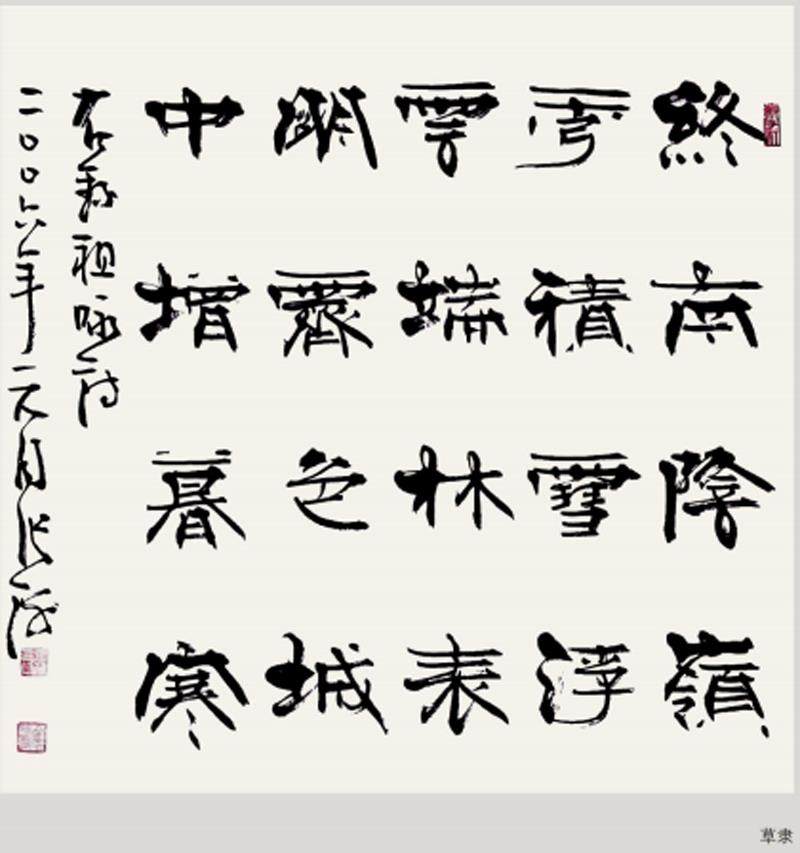 終南陰嶺
秀積雪浮
雲端林表
明霽色城
中增暮寒
右錄祖咏詩
二〇〇六年元月張
草隶